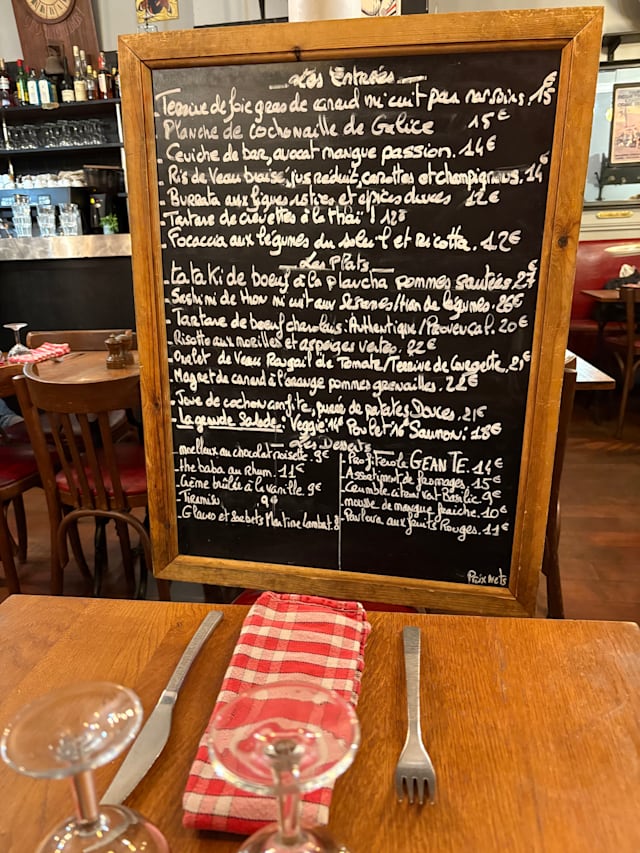 Les Entrées
- Terrine de foie gras de canard mi cuit par nos soins. 15€
- Planche de cochonaille de Galice 15€
- Ceviche de bar, avocat mangue passion. 14€
- Ris de Veau braisé, jus réduit, carottes et champignons. 14€
- Burrata aux figues roties et epices douces 12€
- Tartare de crevettes à la thaï ! 12€
- Focaccia aux légumes du soleil et ricotta. 12€
Les Plats
- tataki de boeuf à la plancha pommes sautées 27€
- Sashimi de thon mi cuit aux sesames/tian de légumes. 26€
- Tartare de boeuf charolais: Authentique/Provençal. 20€
- Risotto aux morilles et asperges vertes. 22€
- de Veau Rougail de Tomate/Terrine de Courgette. 21€
- Magret de canard à l'orange pommes grenailles. 22€
- Joue de cochon confite, purée de patates Douces. 21€
- La grande Salade: Veggie: 14€ Poulet 16€ Saumon: 18€
Les Desserts
- moelleux au chocolat noisette. 9€
- the baba au rhum. 11€
- Crème brûlée à la vanille. 9€
- Tiramisu 9€
- Glaces et sorbets Martine Lambert. 8
- Profiterole GEANTE. 14€
- Assortiment de fromages. 15€
- Crumble citron vert Basilic 9€
- mousse de mangue fraiche. 10€
- Pavlova aux fruits Rouges. 11€
Prix nets